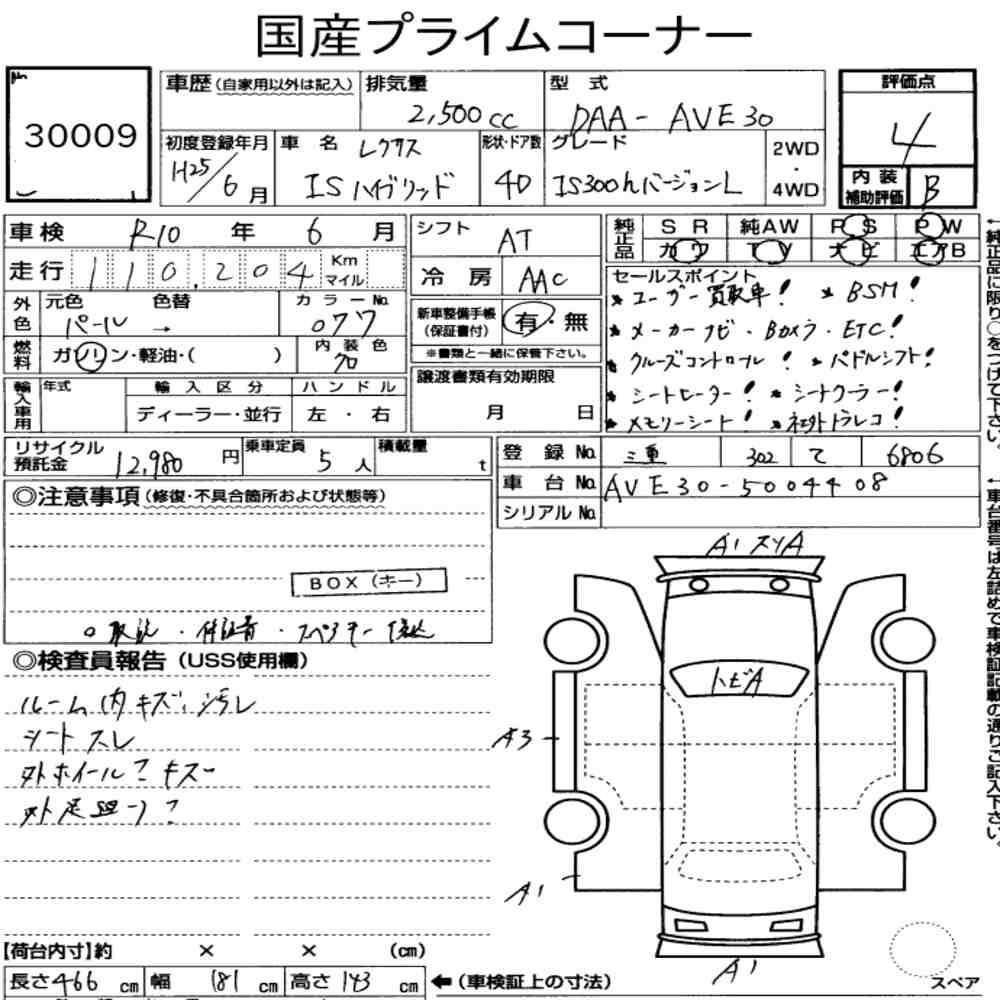 国産プライムコーナー
No
30009
車歴 (自家用以外は記入) 排気量 2,500cc 型式 DAA-AVE30
評価点 4
初度登録年月 H25/6月 車名 レクサス ISハイブリッド 形状・ドア数 4D グレード IS300hバージョンL 2WD・4WD
内装補助評価 B
車検 R10年 6月
シフト AT
純正品 SR 純AW PS PW
カワ TV ナビ エアB
走行 110,204 Km マイル
冷房 AAC
外色 元色 パール 色替 → カラーNo. 077
新車整備手帳 (保証書付) 有・無
※書類と一緒に保管下さい。
燃料 ガソリン・軽油・( ) 内装色
輸入車用 年式 輸入区分 ディーラー・並行 ハンドル 左・右
譲渡書類有効期限 月 日
セールスポイント
★ユーザー買取車! ★BSM!
★メーカーナビ・Bカメラ・ETC!
★クルーズコントロール! ★パドルシフト!
★シートヒーター! ★シートクーラー!
★メモリーシート! ★社外ドラレコ!
リサイクル預託金 12,980円 乗車定員 5人 積載量 t
登録No. 三重 302 て 6806
車台No. AVE30-5004408
シリアルNo.
◎注意事項 (修復・不具合箇所および状態等)
BOX(キー)
○取説・保証書・スペアキー
◎検査員報告 (USS使用欄)
ルーム内キズ、汚レ
シートスレ
外ホイール?キズー
外足廻り?
A1 スリA
トビA
A3
A1
A1
スペア
【荷台内寸】約 × × (cm)
長さ 466cm 幅 181cm 高さ 143cm ←(車検証上の寸法)
←純正品に限り○をつけて下さい。
←車台番号は左詰めで車検証記載の通りご記入下さい。